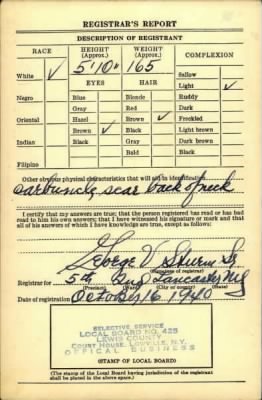 REGISTRAR'S REPORT
DESCRIPTION OF REGISTRANT
RACE HEIGHT (Approx.) WEIGHT (Approx.) COMPLEXION
White ✓ 5'10" 165 Sallow
EYES HAIR Light ✓
Negro Blue Blonde Ruddy
Gray Red Dark
Oriental Hazel Brown ✓ Freckled
Brown ✓ Black Light brown
Indian Black Gray Dark brown
Bald Black
Filipino
Other obvious physical characteristics that will aid in identification
carbuncle scar back of neck
I certify that my answers are true; that the person registered has read or has had
read to him his own answers; that I have witnessed his signature or mark and that
all of his answers of which I have knowledge are true, except as follows:
George V Sturm
(Signature of registrar)
Registrar for 5th
(Precinct) (Ward) (City or county) (State)
Date of registration October 16 1940
SELECTIVE SERVICE
LOCAL BOARD NO. 425
LEWIS COUNTY
COURT HOUSE, LOWVILLE, N.Y.
OFFICAL BUSINESS
(STAMP OF LOCAL BOARD)
(The stamp of the Local Board having jurisdiction of the registrant
shall be placed in the above space.)